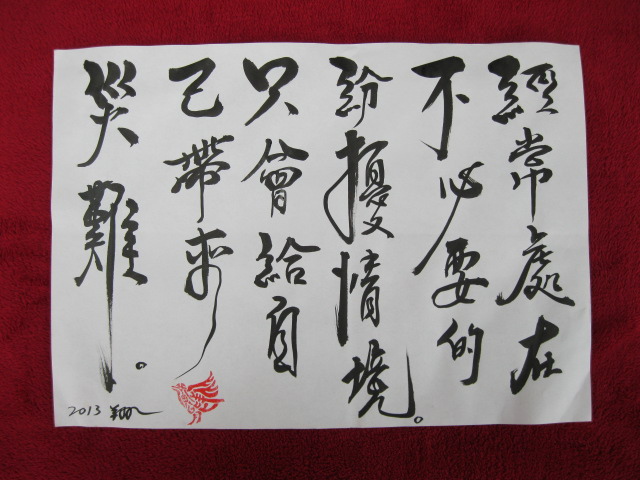 經常處在
不必要的
紛擾情境。
只會給自
己帶來
災難。
2013